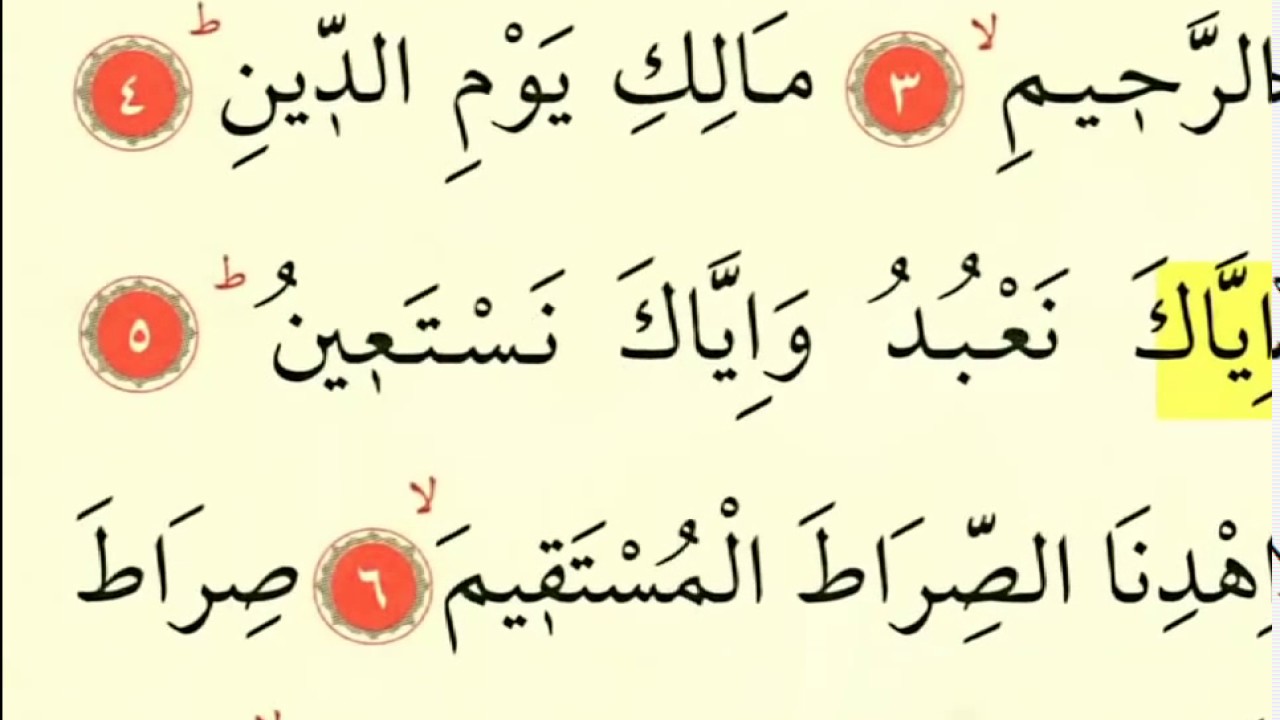 الرَّحٖيمِ ۙ ٣ مَالِكِ يَوْمِ الدّٖينِ ؕ ٤
اِيَّاكَ نَعْبُدُ وَاِيَّاكَ نَسْتَعٖينُ ؕ ٥
اِهْدِنَا الصِّرَاطَ الْمُسْتَقٖيمَ ۙ ٦ صِرَاطَ